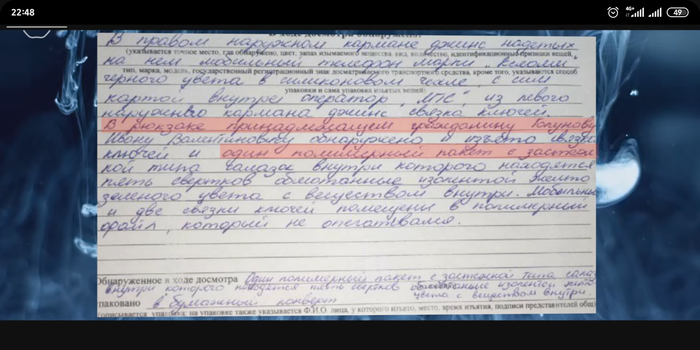 22:48
4G+
49
В ходе досмотра обнаружено:
В правом наружном кармане джинс надетых
(указывается точное место, где обнаружено, цвет, запах изымаемого вещества, вид, количество, идентификационные признаки вещей,
на нем мобильный телефон марки
тип, марка, модель, государственный регистрационный знак досматриваемого транспортного средства, кроме того, указывается способ
черного цвета в силиконовом чехле, с сим
упаковки и сама упаковка изъятых вещей)
картой внутри оператор "МТС", из левого
наружного кармана джинс связка ключей.
В рюкзаке принадлежащем гражданину
Ивану Валентиновичу обнаружено и изъято связка
ключей и один полимерный пакет с застеж
кой типа внутри которого находятся
пять свертков обмотанные изолентой желто
зеленого цвета с веществом внутри. Мобильный
и две связки ключей помещены в полимерный
файл, который не опечатывался.
Обнаруженное в ходе досмотра Один полимерный пакет с застежкой типа
внутри которого находятся пять свертков изолентой
цвета с веществом внутри
упаковано в бумажный конверт
(описывается упаковка, на упаковке также указывается Ф.И.О. лица, у которого изъято, место, время изъятия, подписи представителей общ